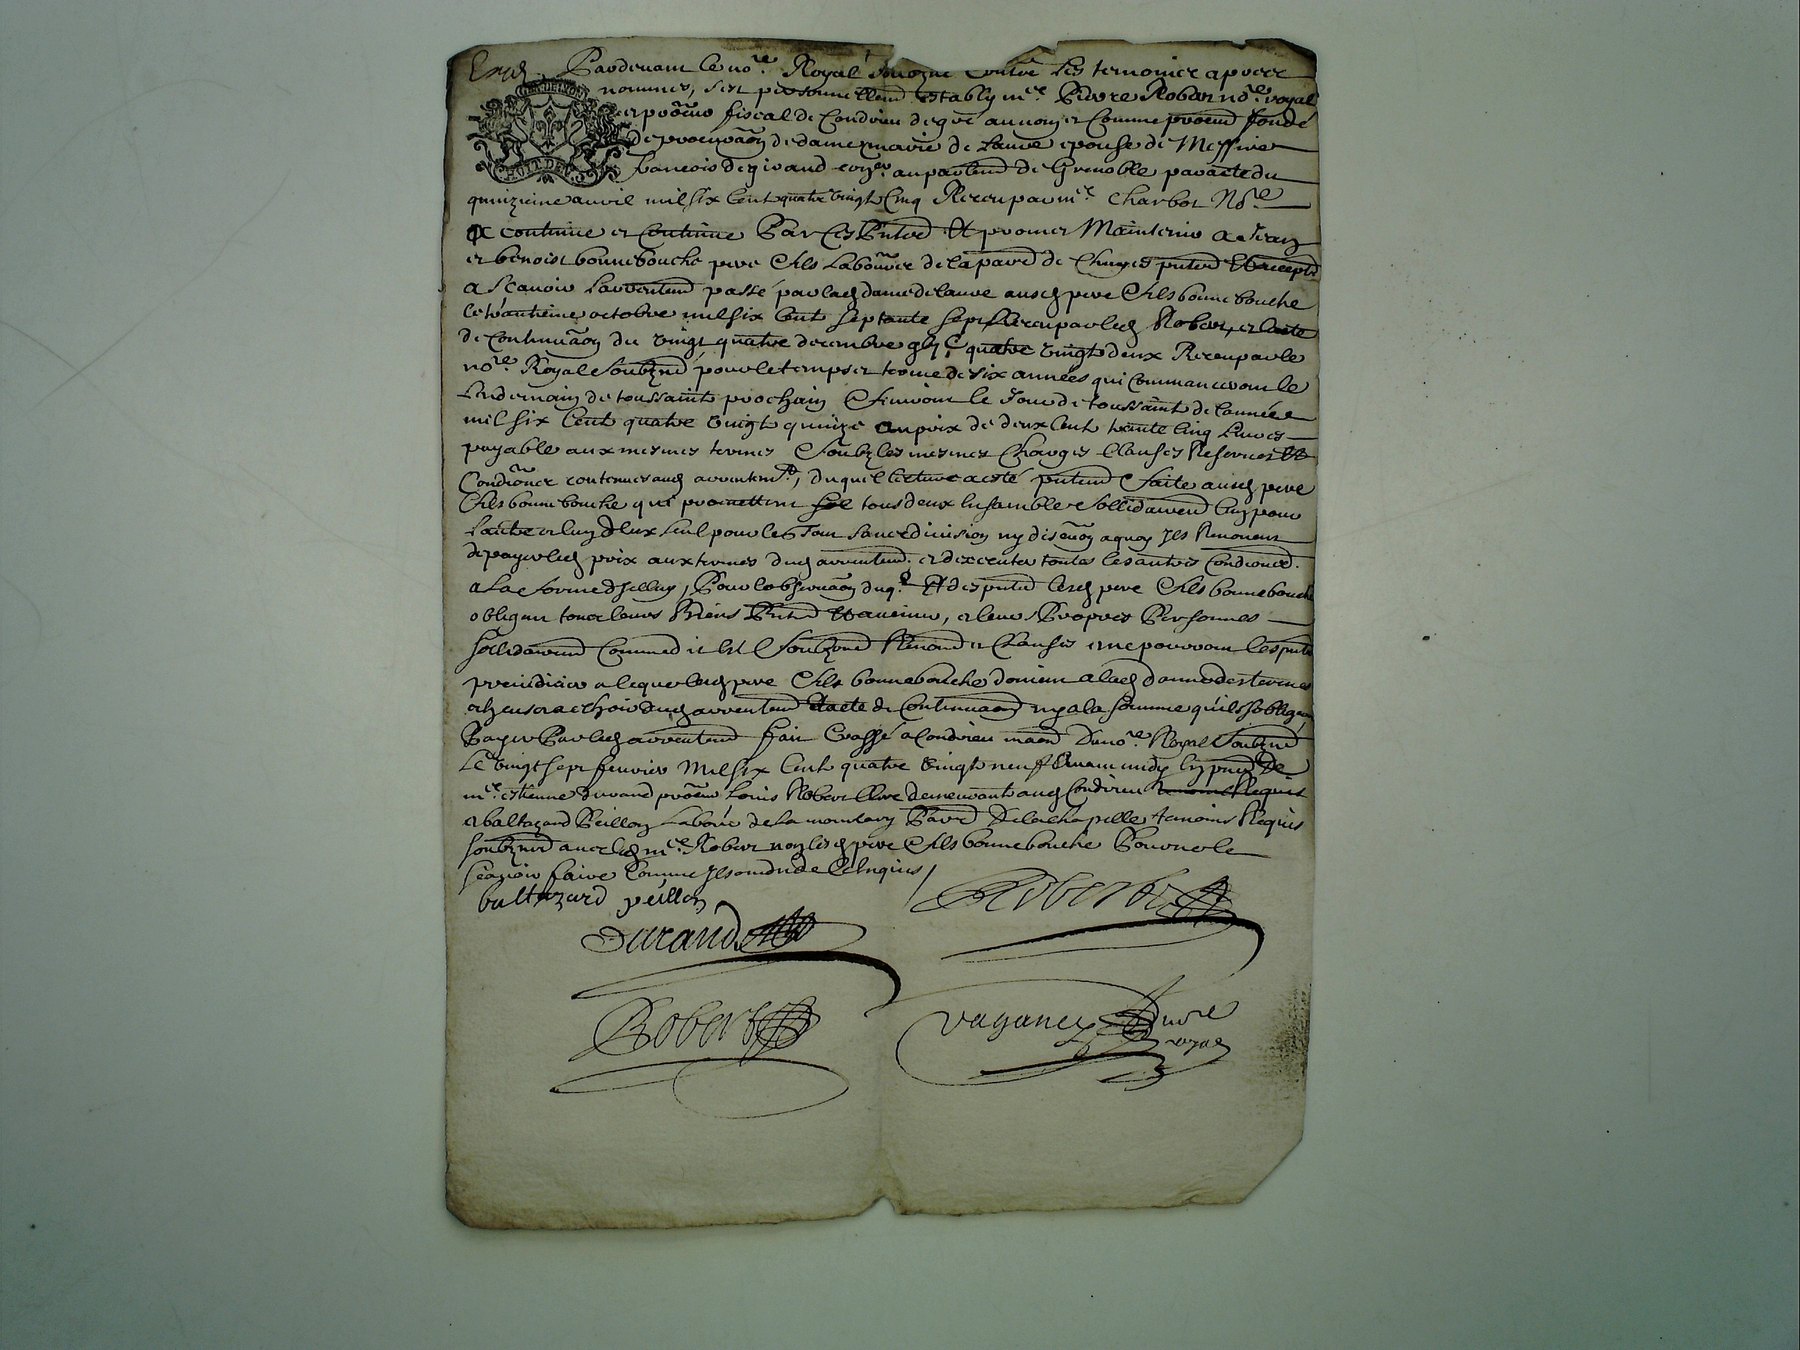 Pardevant le no.re Royal soubzne Contre les temoinez apvres
nommez, sest personnellem establÿ m.re Pierre Robert no.re royal
et proc̃eur fiscal de Condrieu lequel au nom et Comme proc̃eur fondé
de procura͠on de dame marie de Laure epouse de Messire
francois de giraud au parlem de Grenoble par acte du
quinzieme avril mil six Cent quatre vingt Cinq Receu par m.e Charbot No.re
a continue et Continue Par Ces Pntes Et promet Maintenir a Jean
et benoist bonnebouche pere & fils Laboure de la parr de pntes Et aceptt
a scavoir Larrentem passé par lad dame de laure ausd pere & fils bonnebouche
octobre mil six Cent septante sept Receu par led Robert, et lacte
de Continua͠on du vingt quatre decembre quatre vingt deux Receu par le
no.re Royal Soubzne pour le temps et terme de six années qui Commanceront le
Lendemain de toussaint prochain & finiront le Jour de toussaint de lannée
mil six Cent quatre vingt quinze au prix de deux Cent trante Cinq Livres
payable aux mesmes termes & soubz les mesmes Charges Clauses Reserves Et
Condi͠ons contenues aud arrentem, duquel lecture a esté pntem faite ausd pere
& fils bonnebouche qui promettent tous deux Ensamble & sollidairem Lun pour
Lautre et lun deux seul pour le tout sans division ny discu͠on a quoy Ils Renoncent
de payer led prix aux termes dud arrentem. et dexecuter toutes les autres Condions.
a la forme dIcelluy, Pour lobserva͠on duq. Et des pntes lesd pere & fils bonnebouche
obligent tous leurs Biens Pntz Et avenir, et leurs Propres Personnes
sollidairem Comme dit est Soubzm Renon et Clauses et ne pourront les pntes
preiudicier a ce que lesd pere & fils bonnebouche doivent a lad damme des termes
dud arrentem Et acte de Continuaon ny a la somme quils sobligent
Payer Par led arrentem fait & passé a Condrieu maon du no.re Royal Soubzne
Le vingt sept fevrier Mil six Cent quatre vingt neuf avant midy En pnce De
m.re estienne durand proc̃eur Louis Robert Clerc demeurant aud Condrieu
et baltazard Peillon Labour de la montany Parr De la chapelle temoins Requis
soubznez avec led m.e Robert non lesd pere & fils bonnebouche Pour ne le
scavoir faire Comme Ils ont dit de ce Enquis /
baltazard peillon
Robert
Durand
Robert
vaganey no.re
royal